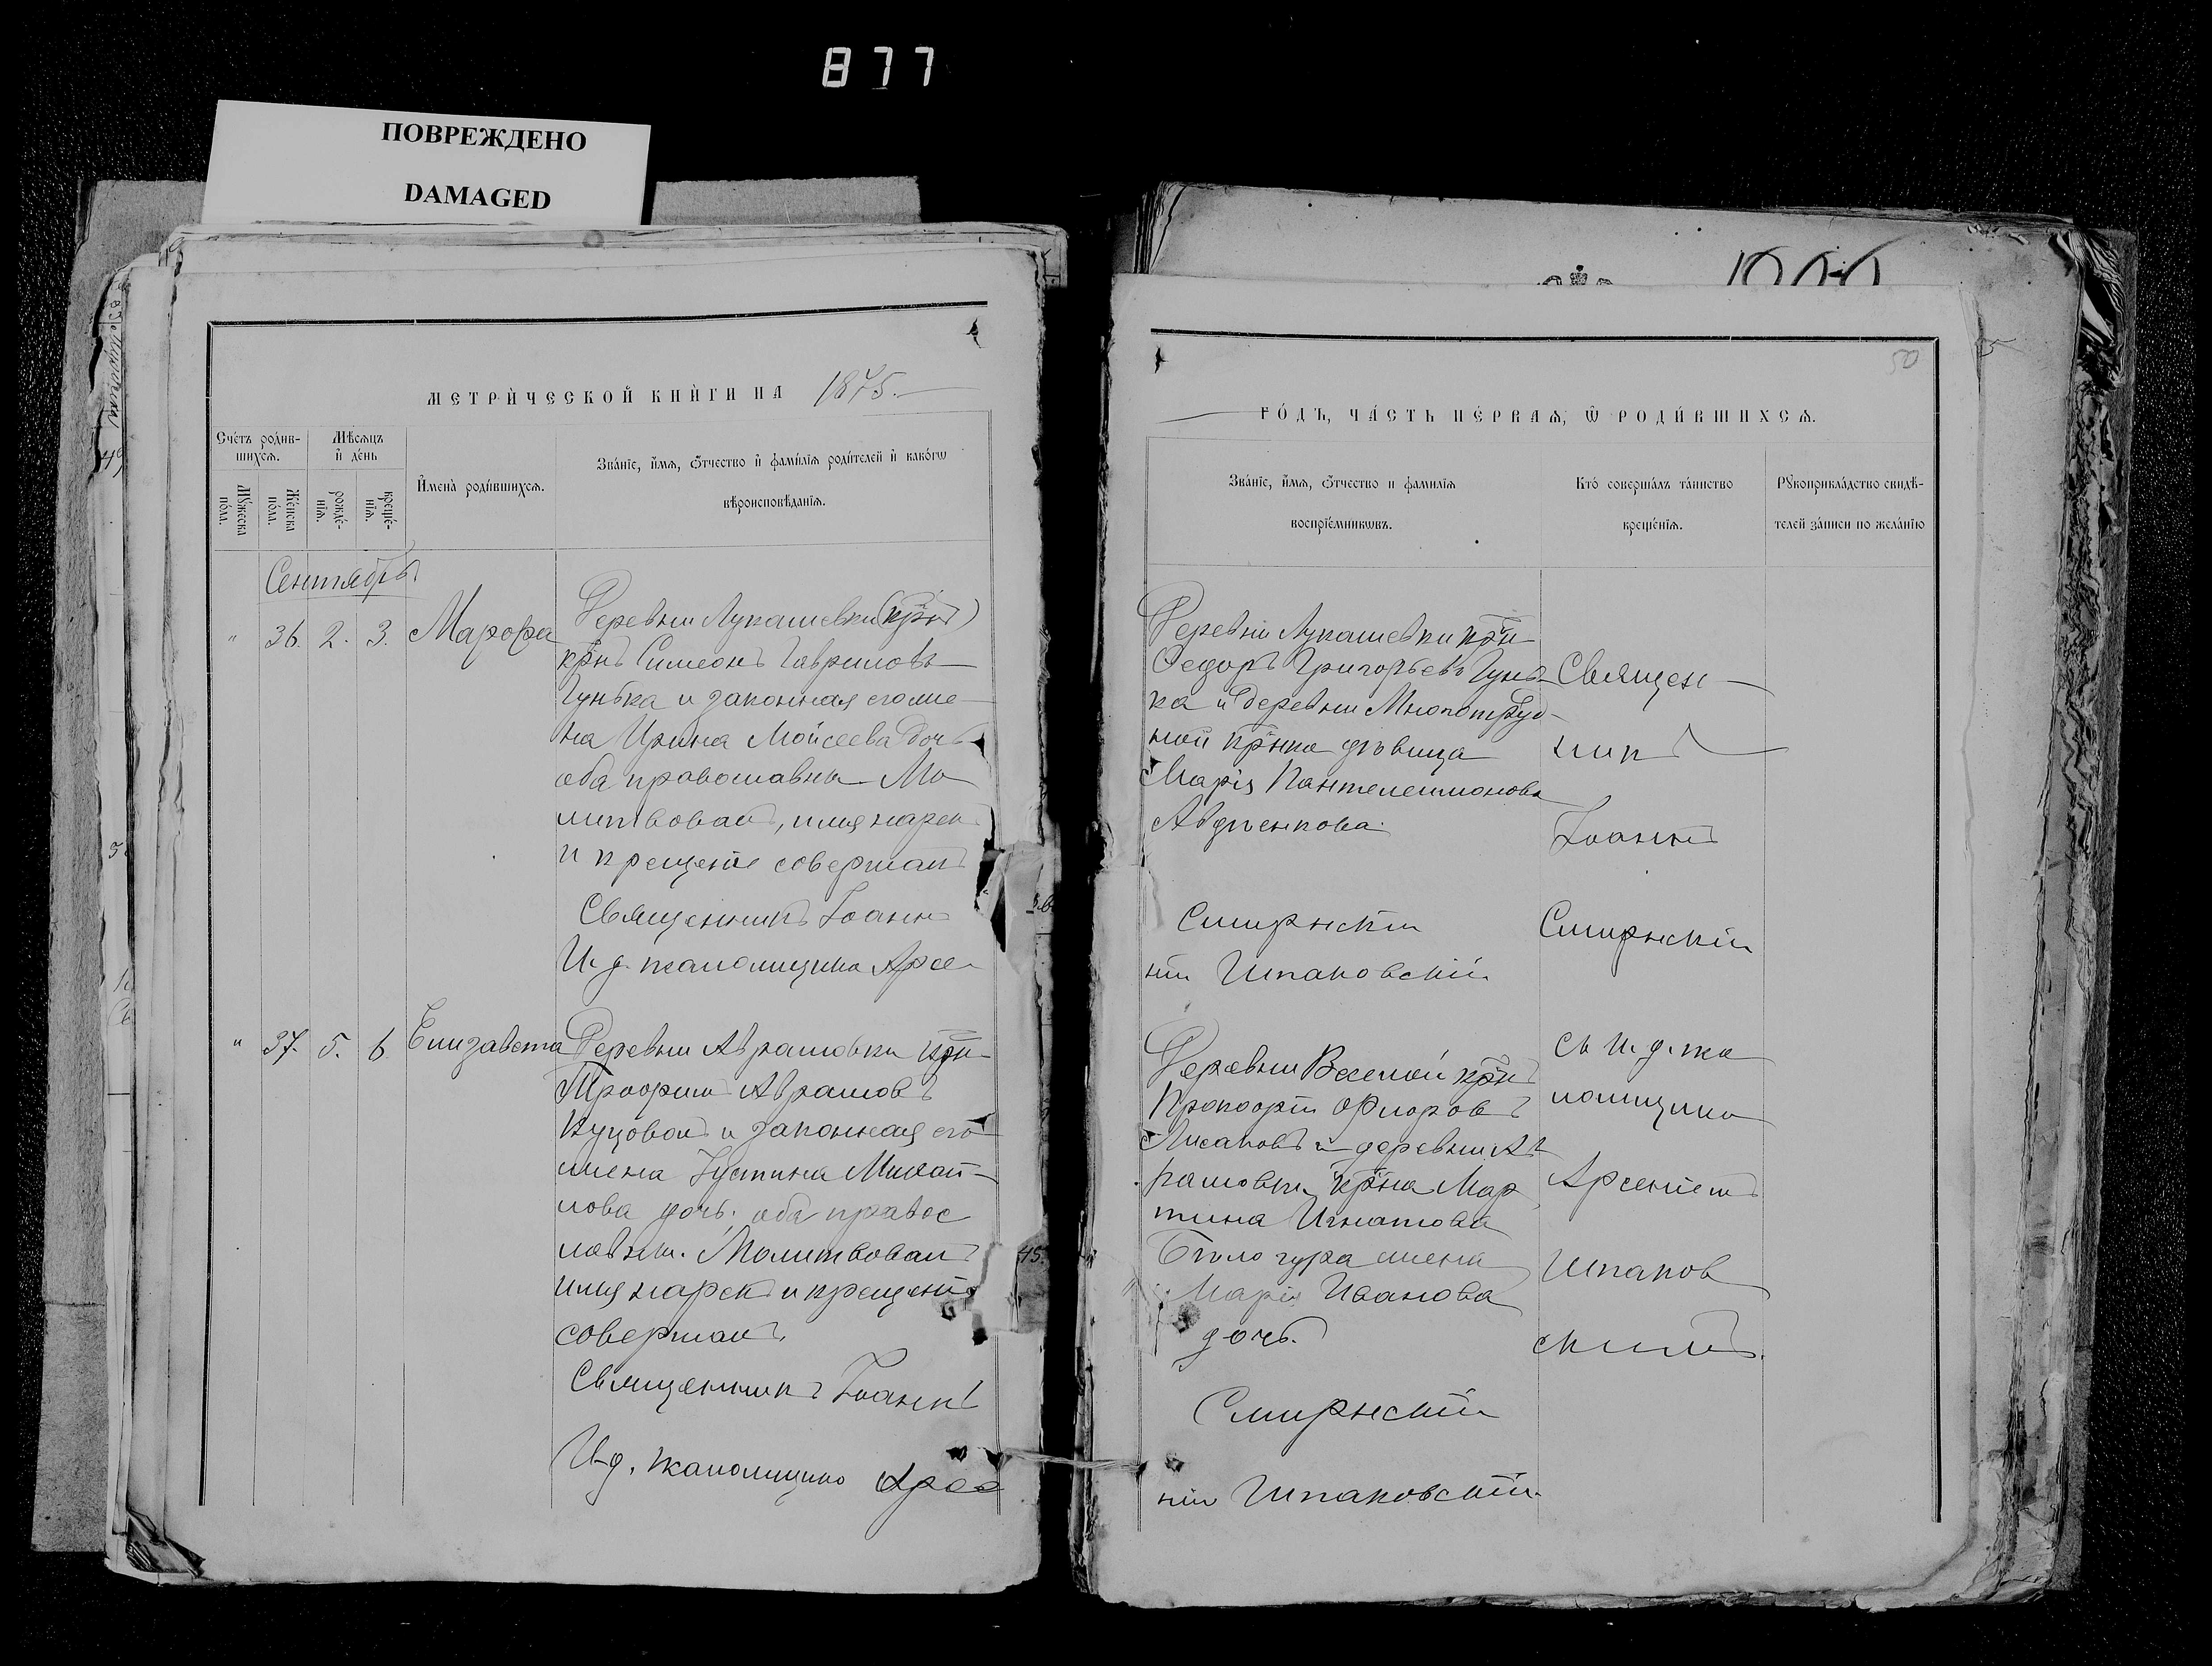 877
ПОВРЕЖДЕНО
DAMAGED
МЕТРИ́ЧЕСКОЙ КНИ́ГИ НА 1875.
Сче́тъ роди́в-
шихсѧ.
Мѣсѧцъ
и҆ де́нь
Мꙋ́жеска
по́ла.
Же́нска
по́ла.
рожде́-
нїѧ.
креще́-
нїѧ.
И҆мена̀ роди́вшихсѧ.
Зва́нїе, и҆́мѧ, ѻ҆́тчество и҆ фами́лїѧ роди́телей и҆ како́гѡ
вѣроисповѣ́данїѧ.
Сентябрь
" 36. 2. 3. Марѳа
Деревни Лукашевки (крнъ)
крнъ Симеонъ Гавриловъ
Гунька и законная его же-
на Ирина Мойсеева дочь
оба православны Мо
литвовалъ, имя нарекъ
и крещеніе совершалъ
Священникъ Іоаннъ
И. д. псаломщика Арсе-
" 37. 5. 6 Елизавета
Деревни Аврамовки крн-
Трофимъ Аврамовъ
и законная его
жена Іустина Михай-
лова дочь. оба правос
лавны. Молитвовалъ
имя нарекъ и крещеніе
совершалъ.
Священникъ Іоаннъ
И. д. псаломщика Арсе
50
ГО́ДЪ, ЧА́СТЬ ПЕ́РВАѦ, Ѿ РОДИ́ВШИХСѦ.
Зва́нїе, и҆́мѧ, ѻ҆́тчество и фами́лїѧ
воспрїе́мникѡвъ.
Кто̀ соверша́лъ та́инство
креще́нїѧ.
Рꙋкоприкла́дство свидѣ́-
телей за́писи по жела́нїю
Деревни Лукашевки крн-
Ѳедоръ Григорьевъ Гунь-
ка и деревни Многотруд-
ной крнка дѣвица
Марія Пантелеимонова
Авдѣенкова.
Смирнскій
ній Шпаковскій
Священ-
никъ
Іоаннъ
Смирнскій
Деревни Веселой крнъ
Прокофій Флоровъ
Лисаковъ и деревни Ав
рамовки крна Мар
тина Игнатова
Бѣлогура жена
Марія Иванова
дочь.
Смирнскій
ній Шпаковскій.
съ и. д. пса
ломщика
Арсеніемъ
Шпаков
скимъ.
45.